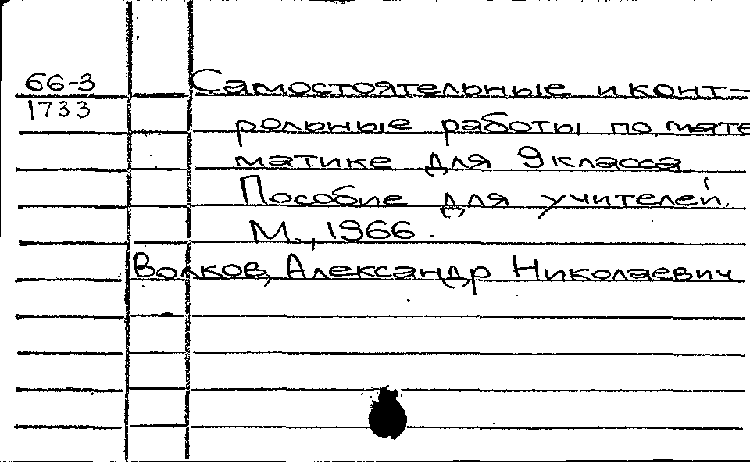 66-3
1733
Самостоятельные и конт-
рольные работы по мате
матике для 9 класса
Пособие для учителей.
М., 1966.
Волков, Александр Николаевич